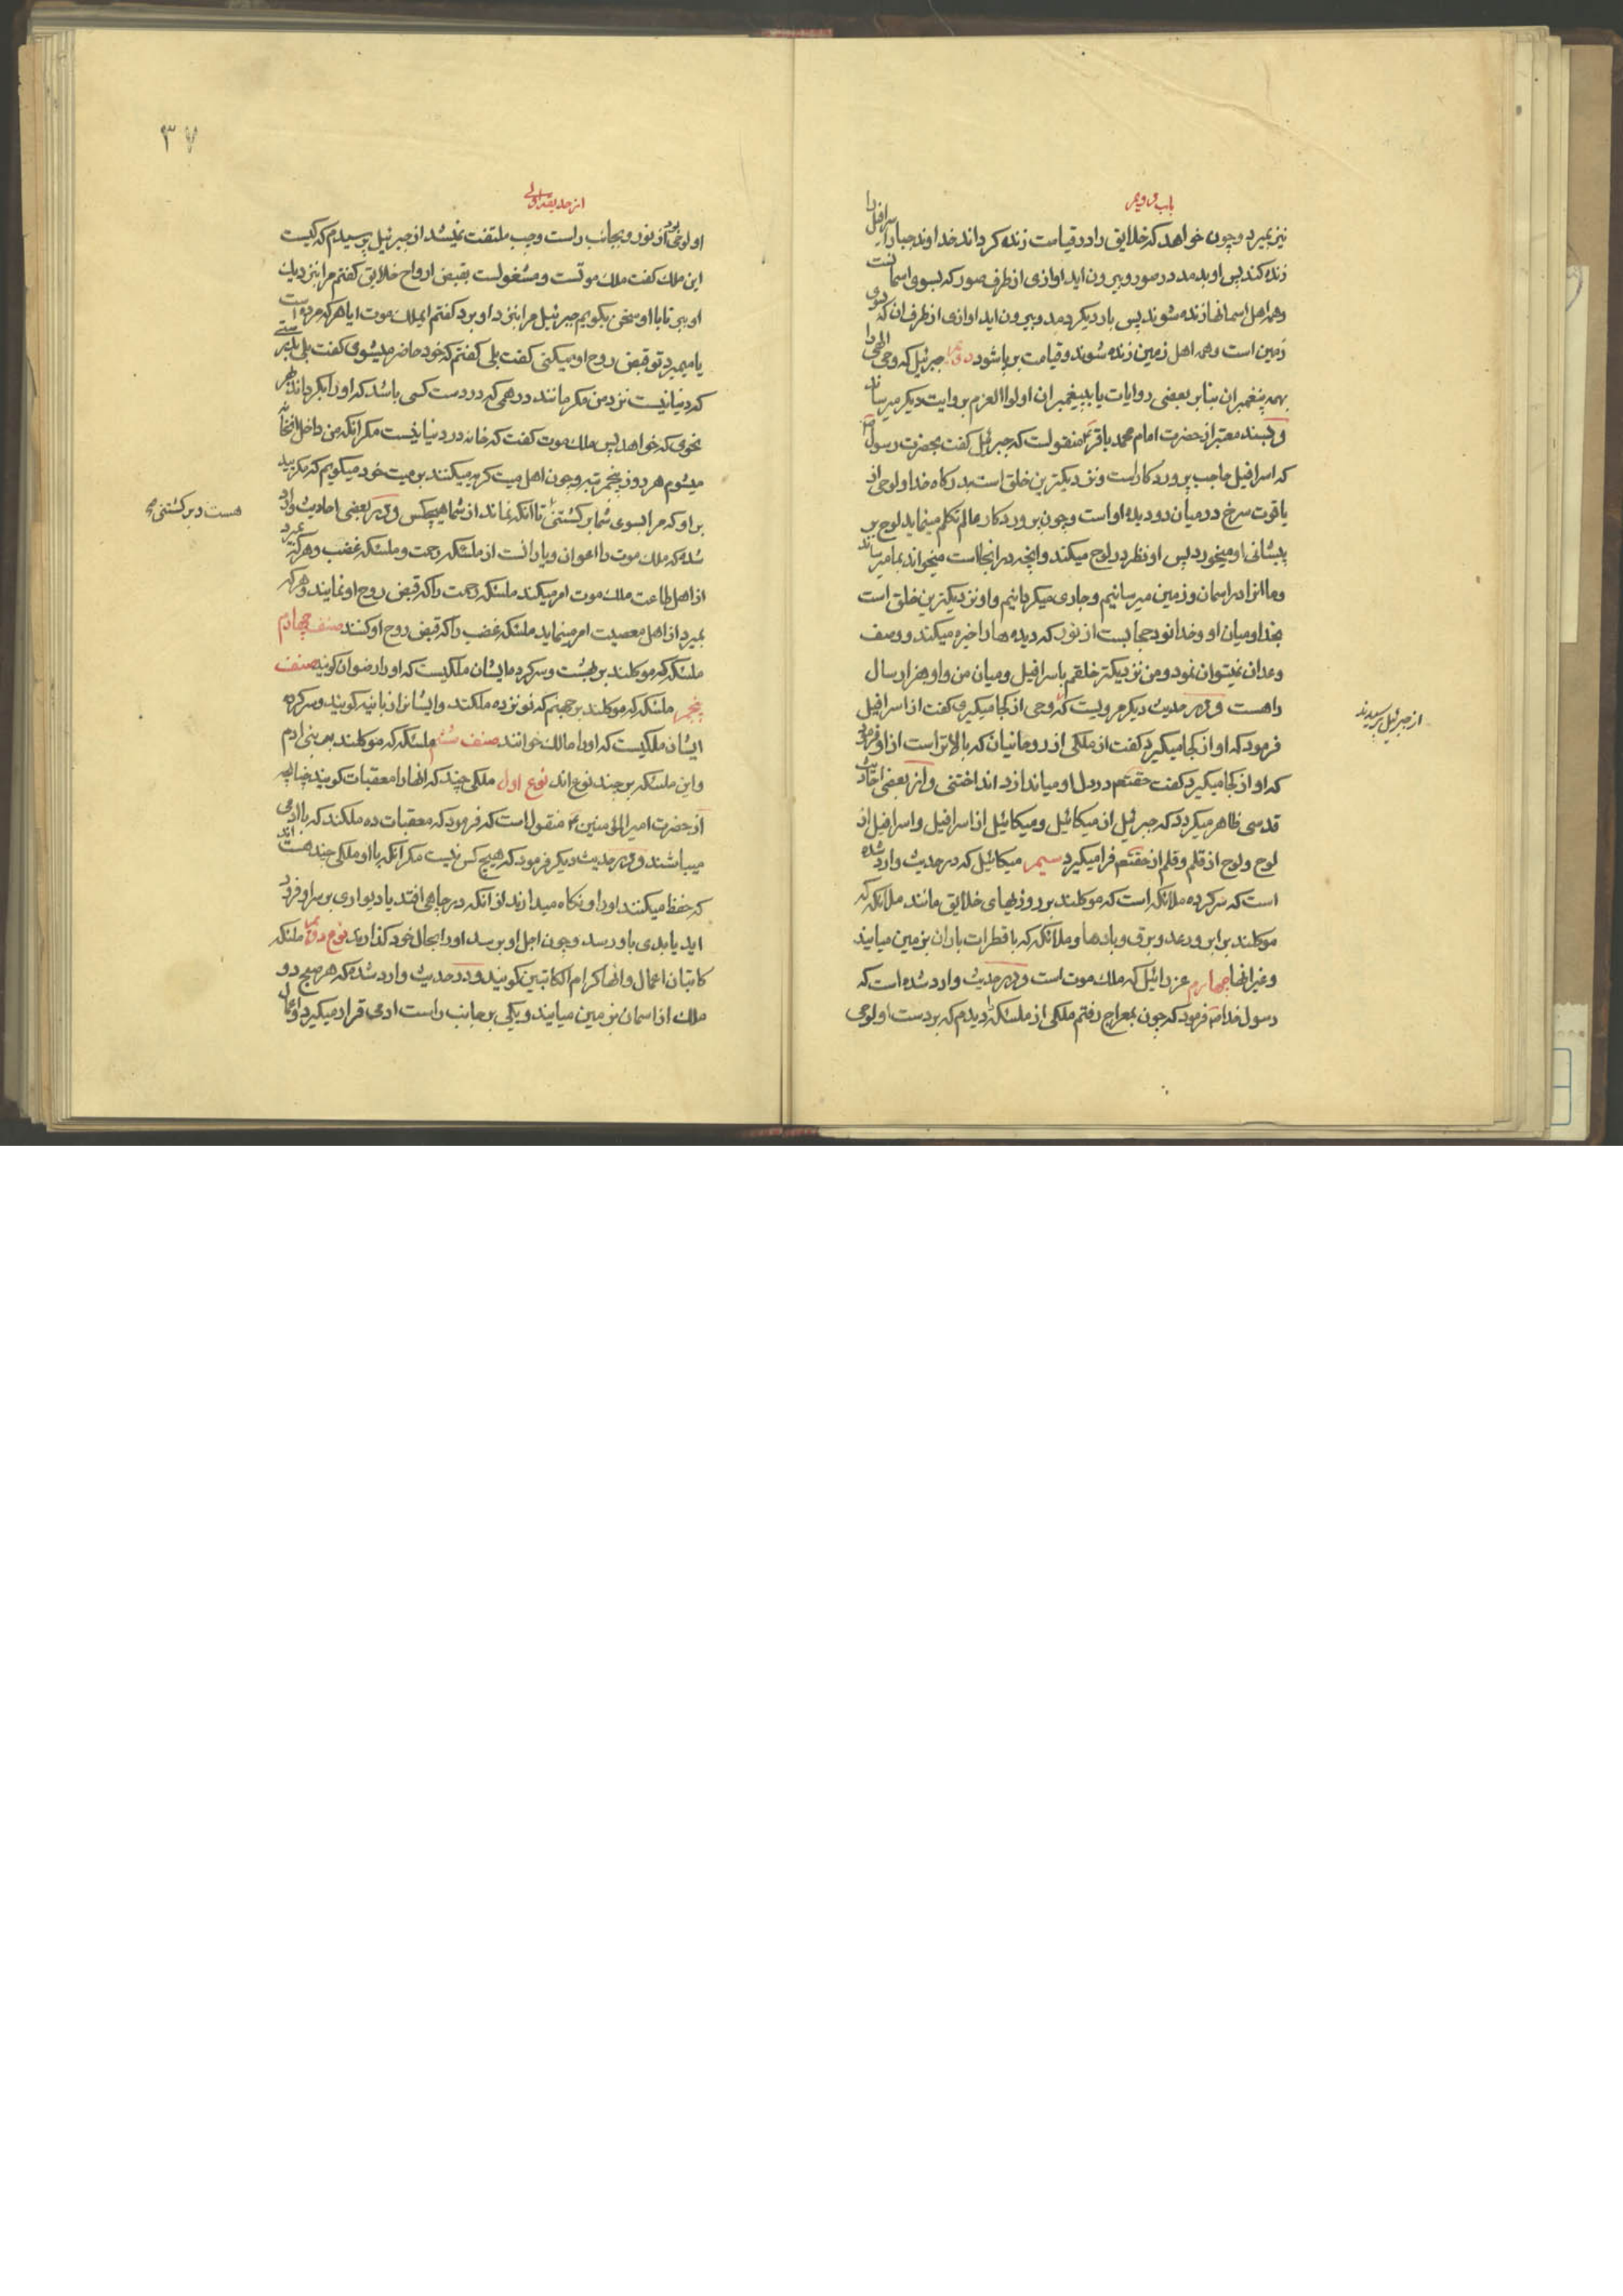 باب دویم
نیز بمیرد و چون خواهد که خلایق را در قیامت زنده کرداند خداوند جبار اسرافیل را
زنده کند پس او بدمد در صور و بیرون اید اوازی از طرف صور که بسوی اسمانست
و همه اهل اسمانها زنده شوند پس بار دیکر دمد و بیرون اید اوازی از طرف ان که سوی
زمین است و همه اهل زمین زنده شوند و قیامت برپا شود دویم جبرئیل که وحی الهی را
بهمه پیغمبران بنابر بعضی روایات یا به پیغمبران اولوا العزم بروایت دیکر میرساند
و بسند معتبر از حضرت امام محمد باقر ع منقولست که جبرئیل کفت بحضرت رسول ص
که اسرافیل حاجب پروردکار است و نزدیکترین خلق است بدرکاه خدا و لوحی از
یاقوت سرخ در میان دو دیده او است و چون پروردکار عالم تکلم مینماید لوح بر
پیشانی او میخورد پس او نظر در لوح میکند و انچه در انجا است میخواند بما میرساند
و ما انرا در اسمان و زمین میرسانیم و جاری میکردانیم و او نزدیکترین خلق است
بخدا و میان او و خدا نود حجابست از نور که دیده ها را خیره میکند و وصف
و عد ان نمیتوان نمود و من نزدیکتر خلقم باسرافیل و میان من و او هزار سال
راهست و در حدیث دیکر مرویست که وحی از کجا میکیری کفت از اسرافیل
از جبرئیل پرسیدند
فرمود که او از کجا میکیرد کفت از ملکی از روحانیان که بالاتر است از او فرمود
که او از کجا میکیرد کفت حقتعم در دل او میاندازد انداختنی و از بعضی احادیث
قدسی ظاهر میکردد که جبرئیل از میکائیل و میکائیل از اسرافیل و اسرافیل از
لوح و لوح از قلم و قلم از حقتعم فرا میکیرد سیم میکائیل که در حدیث وارد شده
است که سرکرده ملائکه است که موکلند بر روزیهای خلایق مانند ملائکه که
موکلند بر ابر و رعد و برق و بادها و ملائکه که با قطرات باران بزمین میایند
و غیر انها چهارم عزرائیل که ملک موت است و در حدیث وارد شده است که
رسول خدا ص فرمود که چون بمعراج رفتم ملکی از ملئکه را دیدم که بر دست او لوحی
٣٧
از حدیقه اولی
او لوحی بود از نور و بجانب راست و چپ ملتفت نمیشد از جبرئیل پرسیدم که کیست
این ملک کفت ملک موتست و مشغولست بقبض ارواح خلایق کفتم مرا نزدیک
او ببر تا با او سخن بکویم جبرئیل مرا بنزد او برد کفتم ای ملک موت ایا هر که مرده است
یا میمیرد تو قبض روح او میکنی کفت بلی کفتم که خود حاضر میشوی کفت بلی بدرستی
که دنیا نیست نزد من مکر مانند درهمی که در دست کسی باشد که او را بکرداند بهر
نحوی که خواهد پس ملک موت کفت که خانه در دنیا نیست مکر انکه من داخل انخانه
میشوم هر روز پنجمرتبه و چون اهل میت کریه میکنند بر میت خود میکویم که مکریید
بر او که مرا بسوی شما برکشتنی تا انکه نماند از شما هیچکس و در بعضی احادیث وارد
هست و برکشتنی
شده که ملک موت را اعوان و یارانست از ملئکه رحمت و ملئکه غضب و هر که میرد
از اهل طاعت ملک موت امر میکند ملئکه رحمت را که قبض روح او نمایند و هر که
بمیرد از اهل معصیت امر مینماید ملئکه غضب را که قبض روح او کنند صنف چهارم
ملئکه که موکلند بر بهشت و سرکرده ایشان ملکیست که او را رضوان کویند صنف
پنجم ملئکه که موکلند بر جهنم که نوزده ملکند و ایشانرا زبانیه کویند و سرکرده
ایشان ملکیست که او را مالک خوانند صنف ششم ملئکه که موکلند بر بنی ادم
و این ملئکه بر چند نوع اند نوع اول ملکی چند که انها را معقبات کویند چنانچه
از حضرت امیر المؤمنین ع منقول است که فرمود که معقبات ده ملکند که با ادمی
میباشند و در حدیث دیکر فرمود که هیچ کس نیست مکر انکه با او ملکی چند هستند
که حفظ میکنند او را و نکاه میدارند از انکه در چاهی افتد یا دیواری بر سر او فرود
اید یا بدی باو رسد و چون اجل او برسد او را بحال خود کذارند نوع دویم ملئکه
کاتبان اعمال و انها کرام الکاتبین کویند و در حدیث وارد شده که هر صبح دو
ملک از اسمان بزمین میایند و یکی بر جانب راست ادمی قرار میکیرد و اعمال